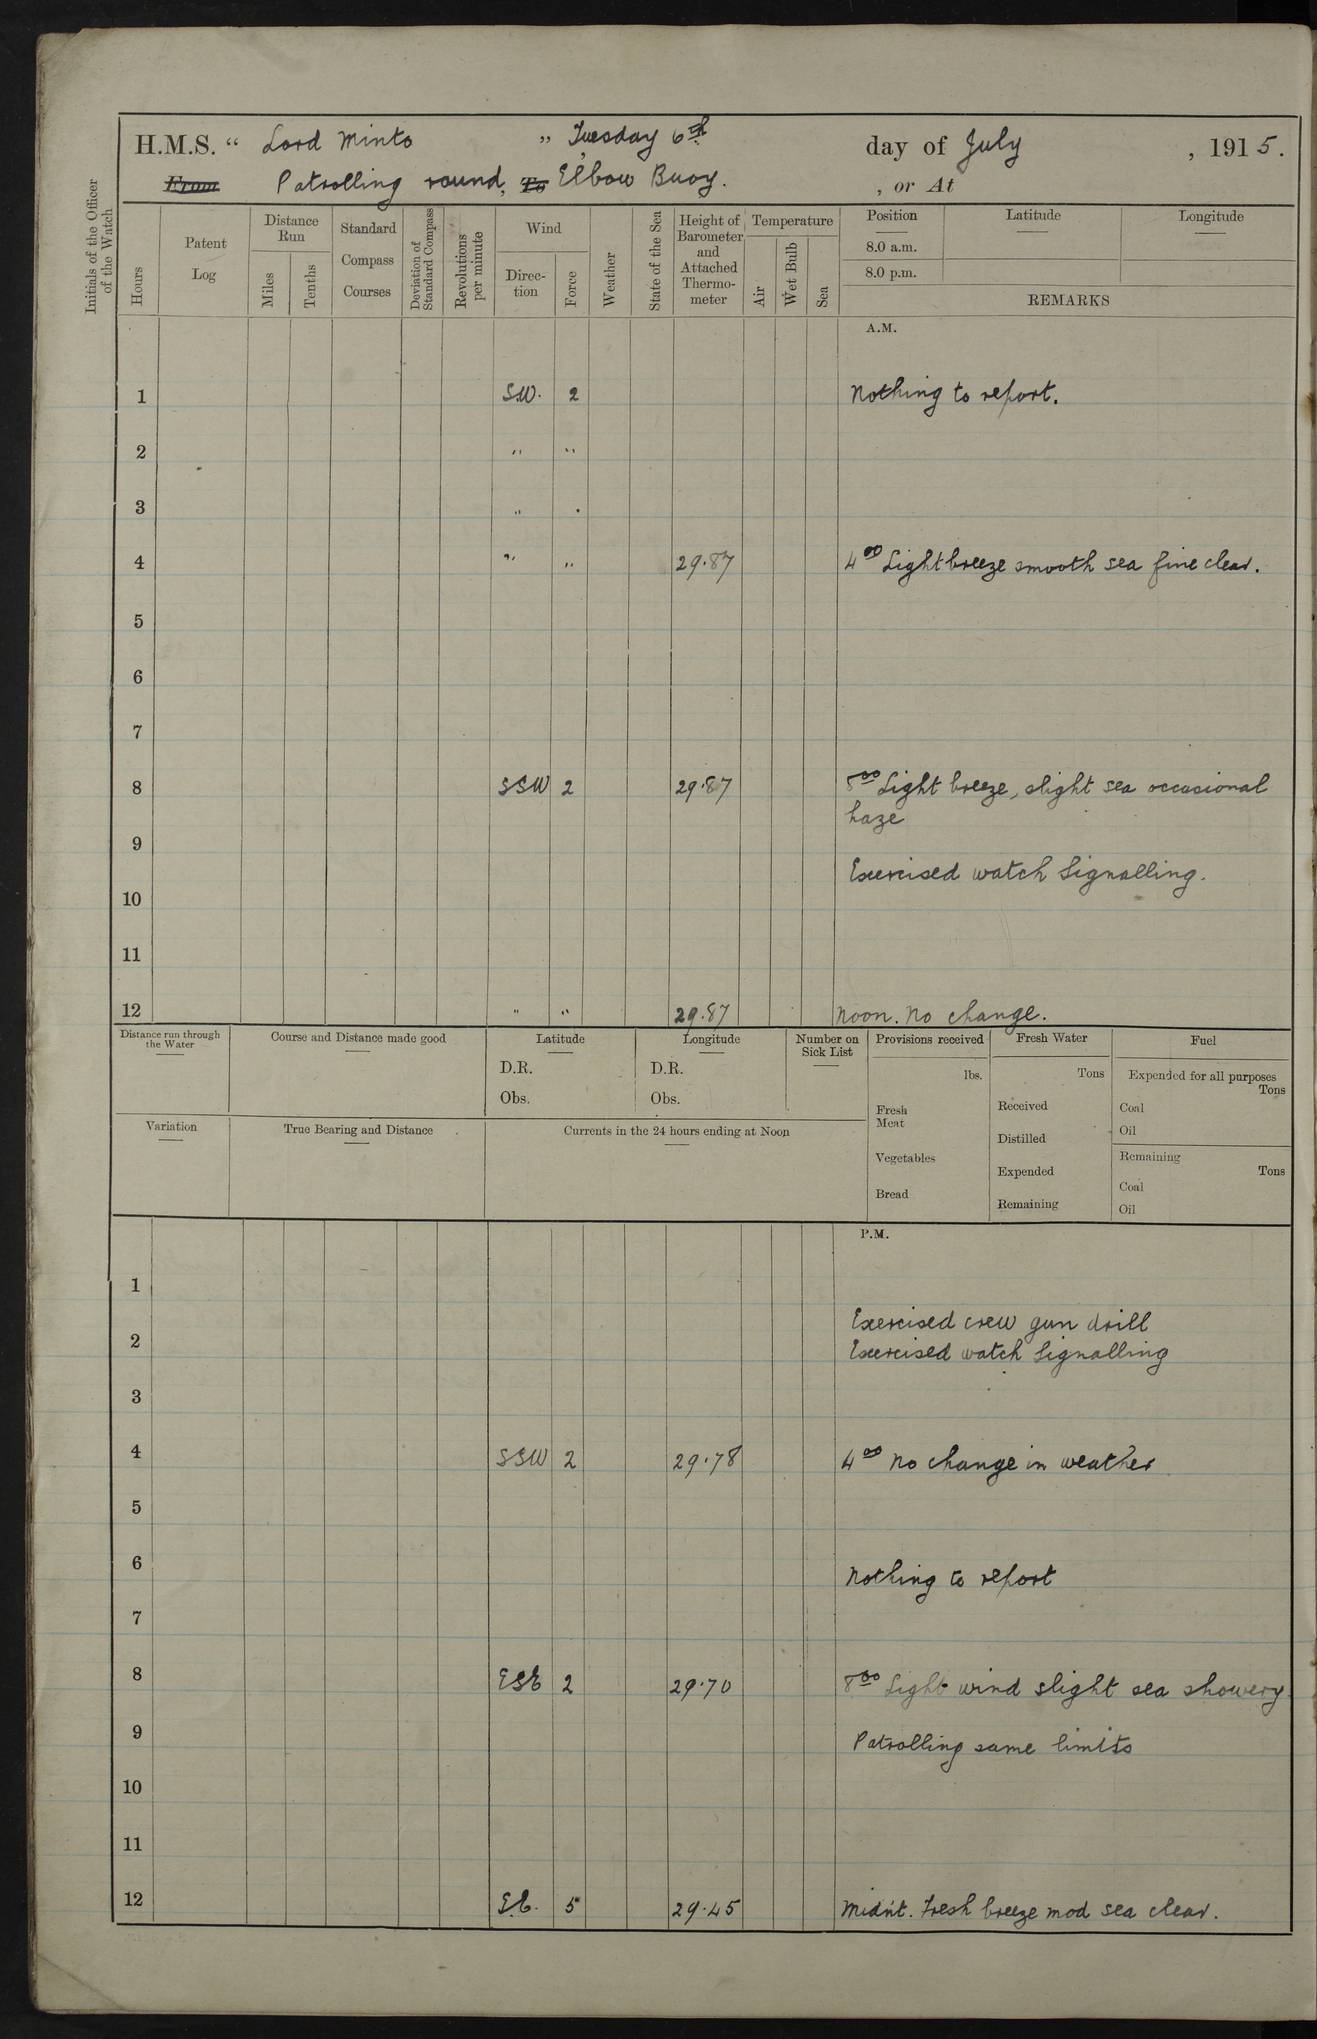 H.M.S. “ Lord Minto ” Tuesday 6th day of July , 1915.
From Patrolling round, To Elbow Buoy. , or At
Initials of the Officer of the Watch
Hours
Patent Log
Distance Run
Miles
Tenths
Standard Compass Courses
Deviation of Standard Compass
Revolutions per minute
Wind
Direction
Force
Weather
State of the Sea
Height of Barometer and Attached Thermometer
Temperature
Air
Wet Bulb
Sea
Position Latitude Longitude
8.0 a.m.
8.0 p.m.
REMARKS
A.M.
1 S.W. 2 Nothing to report.
2 " "
3 " "
4 " " 29.87 4 00 Light breeze smooth sea fine clear.
5
6
7
8 SSW 2 29.87 8 00 Light breeze, slight sea occasional
haze
9
Exercised watch Signalling.
10
11
12 " " 29.87 Noon. No change.
Distance run through the Water
Course and Distance made good
Latitude
D.R.
Obs.
Longitude
D.R.
Obs.
Number on Sick List
Provisions received
lbs.
Fresh Meat
Vegetables
Bread
Fresh Water
Tons
Received
Distilled
Expended
Remaining
Fuel
Expended for all purposes
Tons
Coal
Oil
Remaining
Tons
Coal
Oil
Variation
True Bearing and Distance
Currents in the 24 hours ending at Noon
P.M.
1
Exercised crew gun drill
2 Exercised watch Signalling
3
4 SSW 2 29.78 4 00 No change in weather
5
6 Nothing to report
7
8 ESE 2 29.70 8 00 Light wind slight sea showery
9 Patrolling same limits
10
11
12 S.E. 5 29.45 Midn't. Fresh breeze mod sea clear.